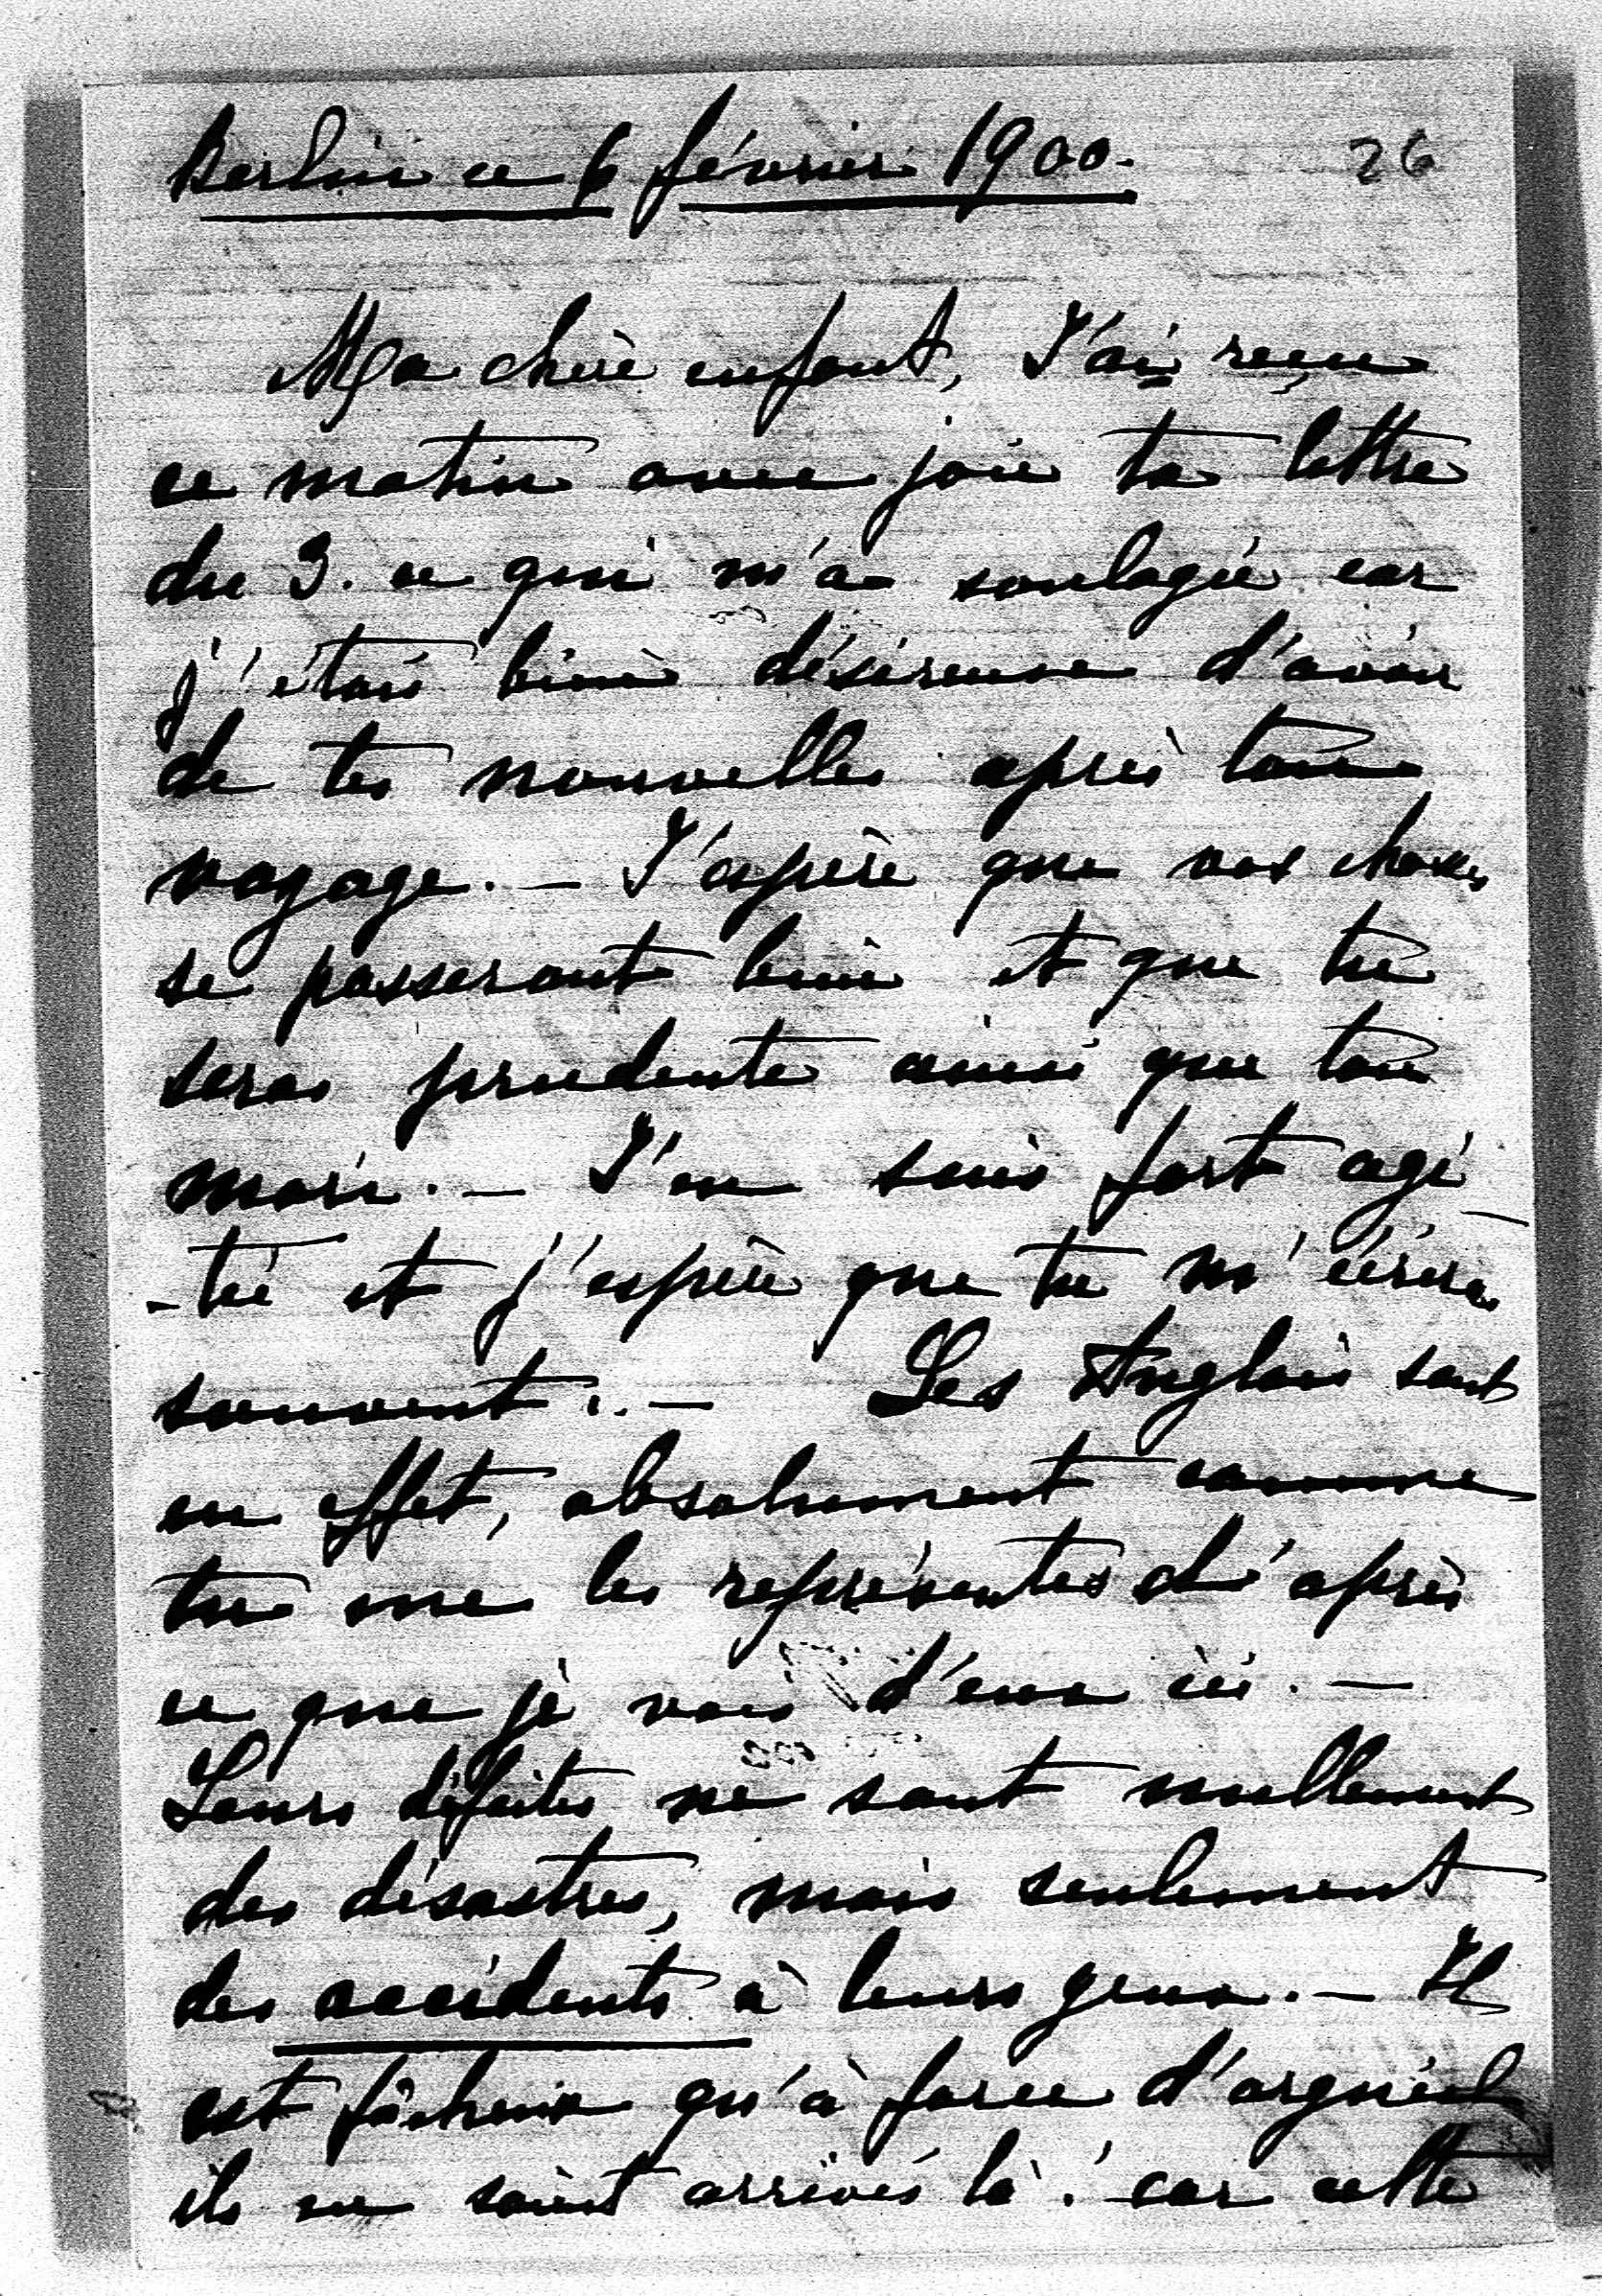 Berlin ce 6 février 1900.
26
Ma chère enfant, J'ai reçu
ce matin avec joie ta lettre
du 3. ce qui m'a soulagée car
j'étais bien désireuse d'avoir
de tes nouvelles après ton
voyage. — J'espère que vos choses
se passeront bien et que tu
seras prudente ainsi que ton
mari. — J'en suis fort agi-
-tée et j'espère que tu m'écriras
souvent. — Les Anglais sont
en effet, absolument comme
tu me les représentes d'après
ce que je vois d'eux ici. —
Leurs défaites ne sont nullement
des désastres, mais seulement
des accidents à leurs yeux. — Il
est fâcheux qu'à force d'orgueil
ils en soient arrivés là! car cette